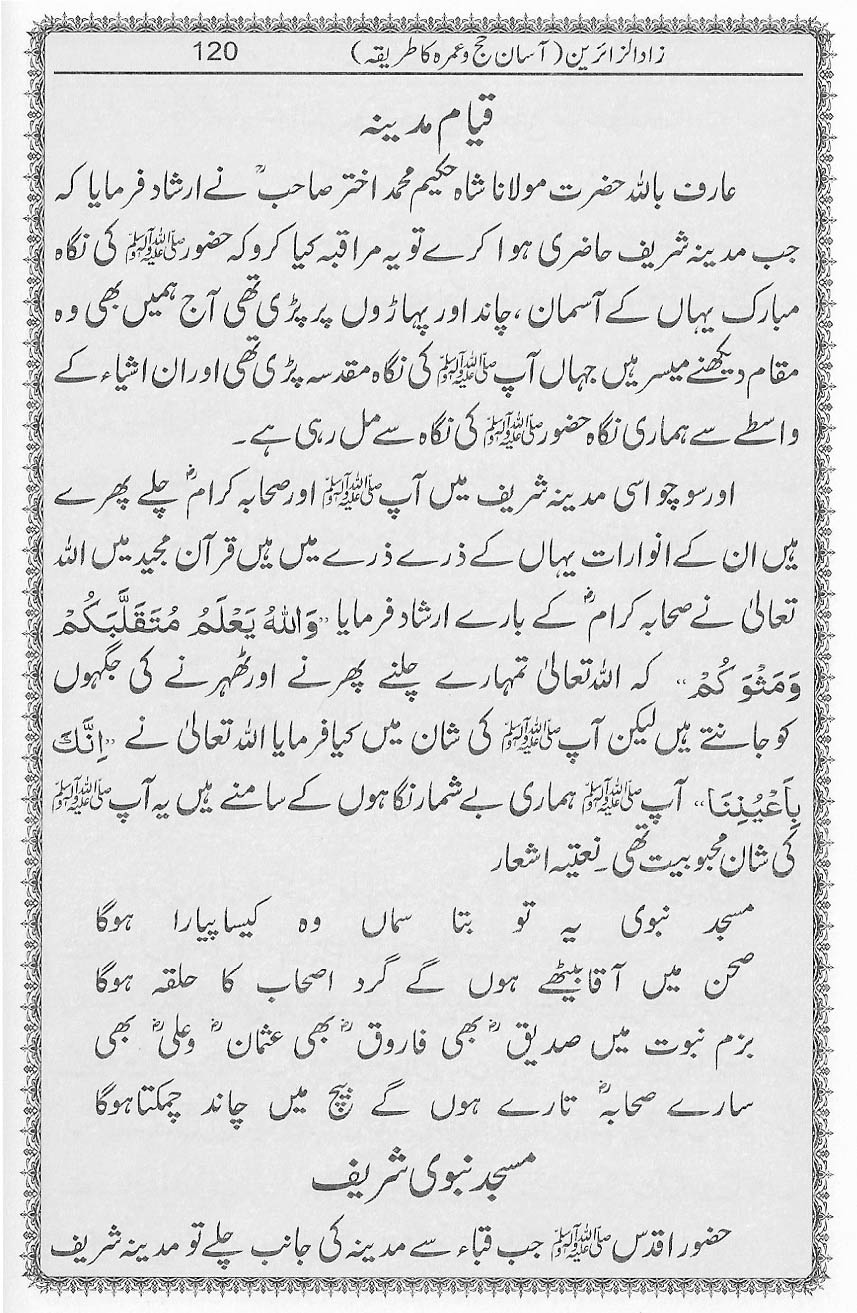 زاد الزائرین (آسان حج و عمرہ کا طریقہ) 120
قیام مدینہ
عارف باللہ حضرت مولانا شاہ حکیم محمد اختر صاحبؒ نے ارشاد فرمایا کہ
جب مدینہ شریف حاضری ہوا کرے تو یہ مراقبہ کیا کرو کہ حضور ﷺ کی نگاہ
مبارک یہاں کے آسمان، چاند اور پہاڑوں پر پڑی تھی آج ہمیں بھی وہ
مقام دیکھنے میسر ہیں جہاں آپ ﷺ کی نگاہ مقدسہ پڑی تھی اور ان اشیاء کے
واسطے سے ہماری نگاہ حضور ﷺ کی نگاہ سے مل رہی ہے۔
اور سوچو اسی مدینہ شریف میں آپ ﷺ اور صحابہ کرامؓ چلے پھرے
ہیں ان کے انوارات یہاں کے ذرے ذرے میں ہیں قرآن مجید میں اللہ
تعالیٰ نے صحابہ کرامؓ کے بارے ارشاد فرمایا ”وَاللهُ يَعْلَمُ مُتَقَلَّبَكُمْ
وَمَثْوَكُمْ“ کہ اللہ تعالیٰ تمہارے چلنے پھرنے اور ٹھہرنے کی جگہوں
کو جانتے ہیں لیکن آپ ﷺ کی شان میں کیا فرمایا اللہ تعالیٰ نے ”اِنَّكَ
بِاَعْيُنِنَا“ آپ ﷺ ہماری بے شمار نگاہوں کے سامنے ہیں یہ آپ ﷺ
کی شان محبوبیت تھی۔ نعتیہ اشعار
مسجد نبوی یہ تو بتا سماں وہ کیسا پیارا ہوگا
صحن میں آقا بیٹھے ہوں گے گرد اصحاب کا حلقہ ہوگا
بزم نبوت میں صدیقؓ بھی فاروقؓ بھی عثمانؓ وعلیؓ بھی
سارے صحابہؓ تارے ہوں گے بیچ میں چاند چمکتا ہوگا
مسجد نبوی شریف
حضور اقدس ﷺ جب قباء سے مدینہ کی جانب چلے تو مدینہ شریف